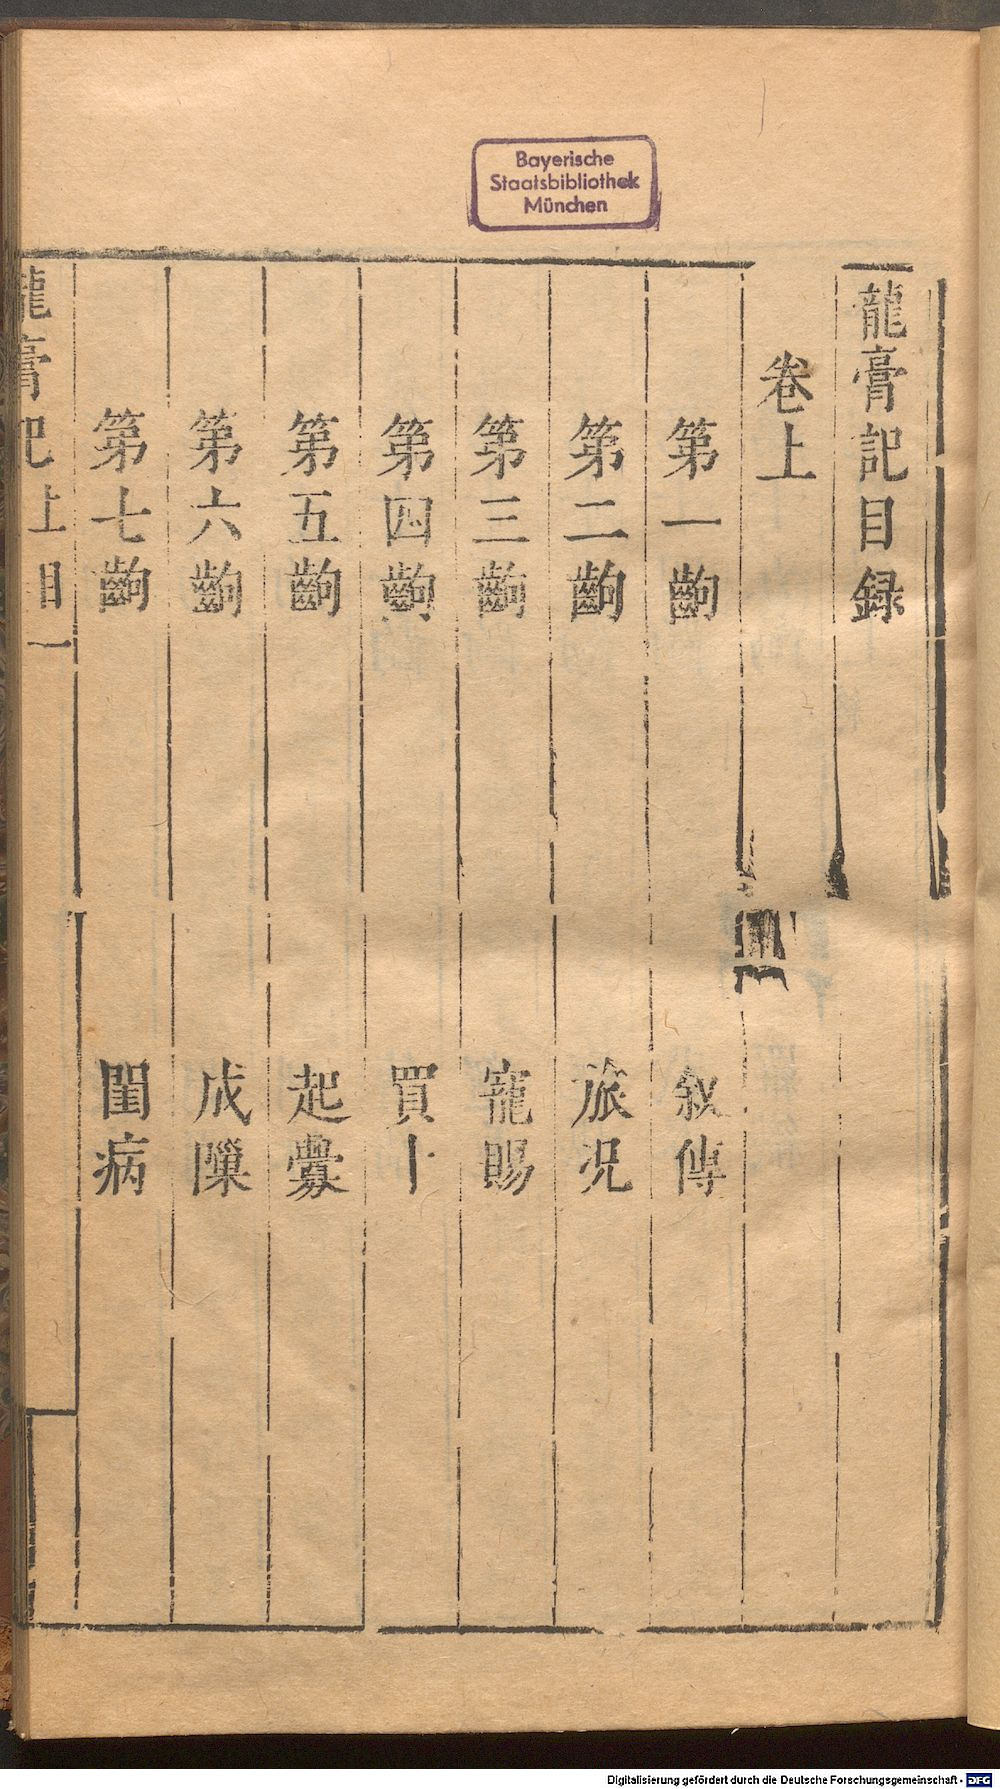 Bayerische
Staatsbibliothek
München
龍膏記目録
卷上
第一齣 叙傳
第二齣 旅况
第三齣 寵賜
第四齣 買卜
第五齣 起釁
第六齣 成隟
第七齣 閨病
龍膏記上目 一
Digitalisierung gefördert durch die Deutsche Forschungsgemeinschaft - DFG